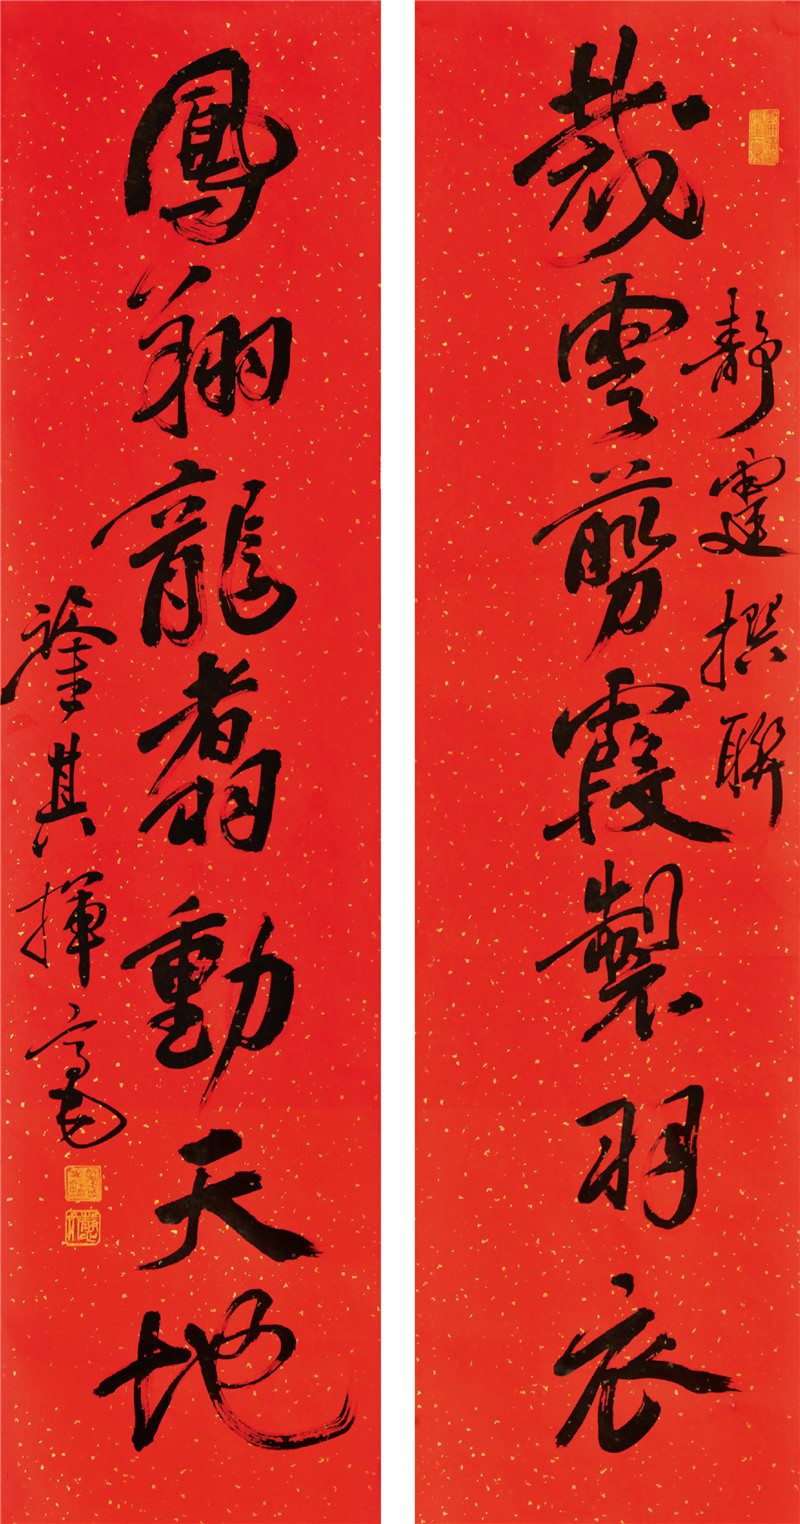 裁雲剪霞製羽衣
靜霆撰聯
鳳翔龍翥動天地
其揮毫